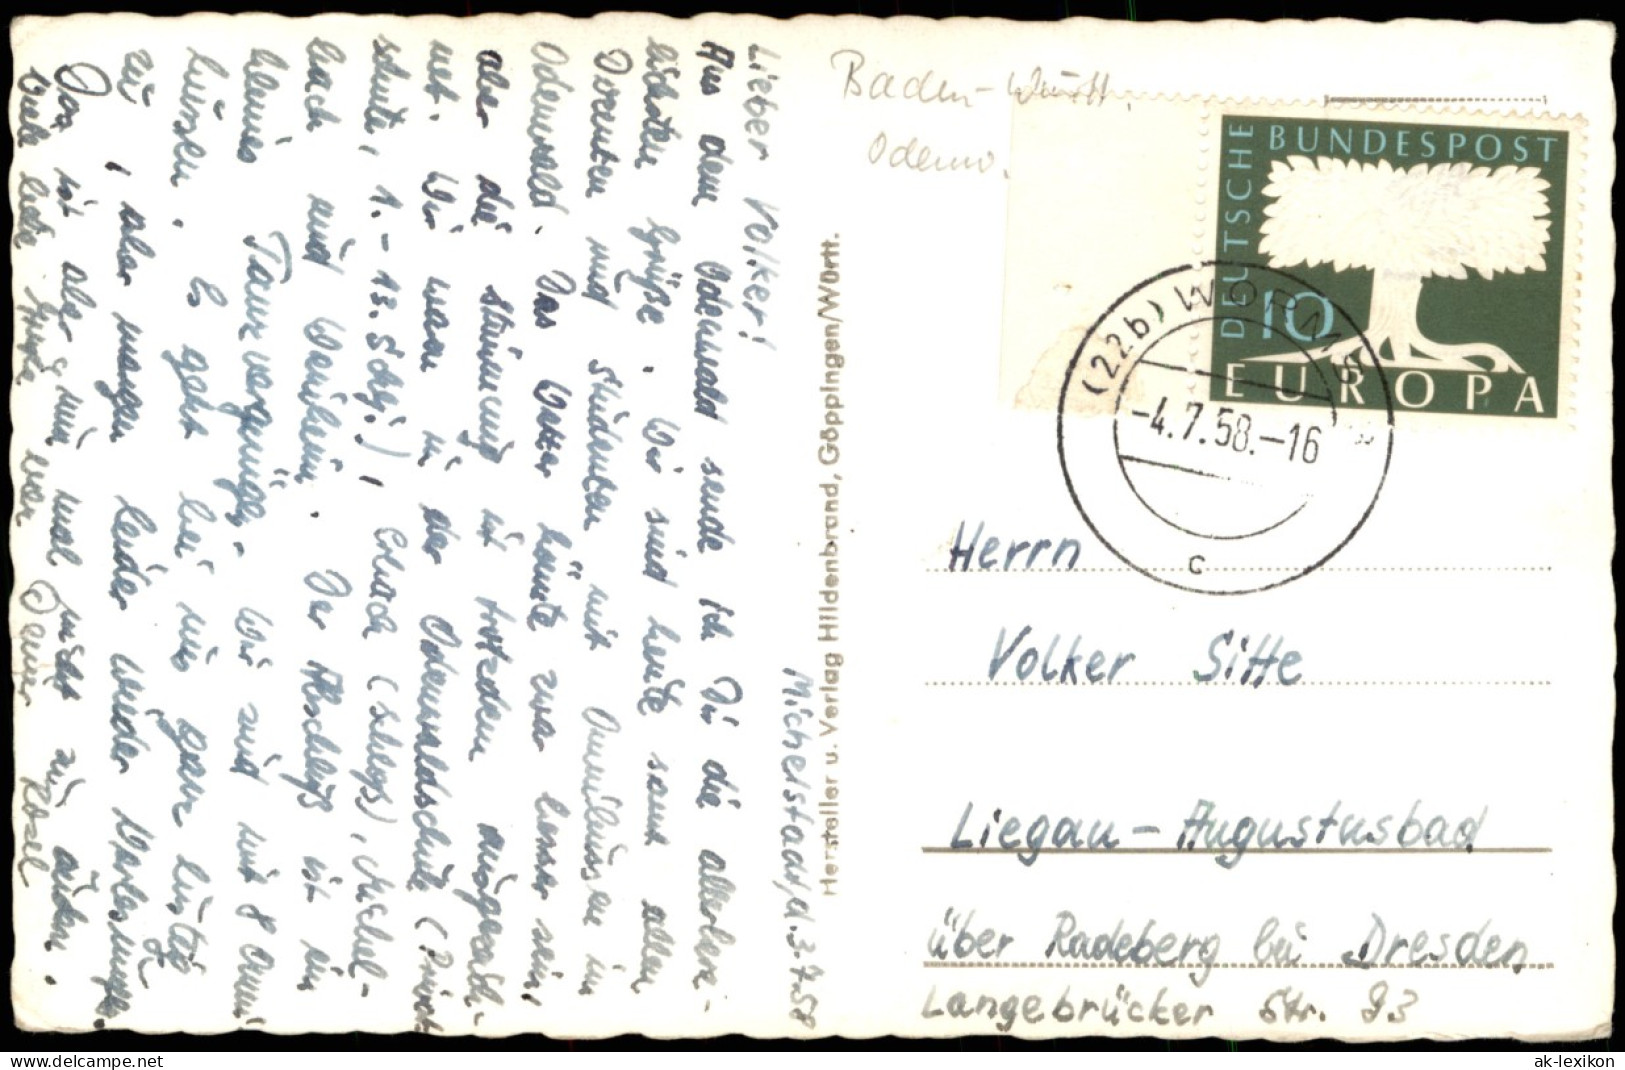 Michelstadt, d. 3.7.58
Lieber Volker!
Aus dem Odenwald sende ich Dir die allerherz-
lichsten Grüße. Wir sind heute samt allen
Dozenten und Studenten mit Omnibussen im
Odenwald. Das Wetter könnte zwar besser sein,
aber die Stimmung ist trotzdem ausgezeich-
net. Wir waren in der Odenwaldschule (Privat-
schule, 1.-13. Schj.), Erbach (Schloß), Michel-
bach und Weinheim. Der Abschluß ist ein
kleines Tanzvergnügen. Wir sind mit 8 Omni-
bussen. Es geht bei uns ganz lustig
zu, aber morgen leider wieder Vorlesungen.
Das ist aber nun mal nicht zu ändern.
Viele liebe Grüße von Deiner Rosel
Hersteller u. Verlag Hildenbrand, Göppingen/Württ.
Baden-Württ.
Odenw.
DEUTSCHE BUNDESPOST
10
EUROPA
(22b) WORMS
-4.7.58.-16
c
Herrn
Volker Sitte
Liegau-Augustusbad
über Radeberg bei Dresden
Langebrücker Str. 93
www.ansichtskarten-lexikon.de
ak-lexikon